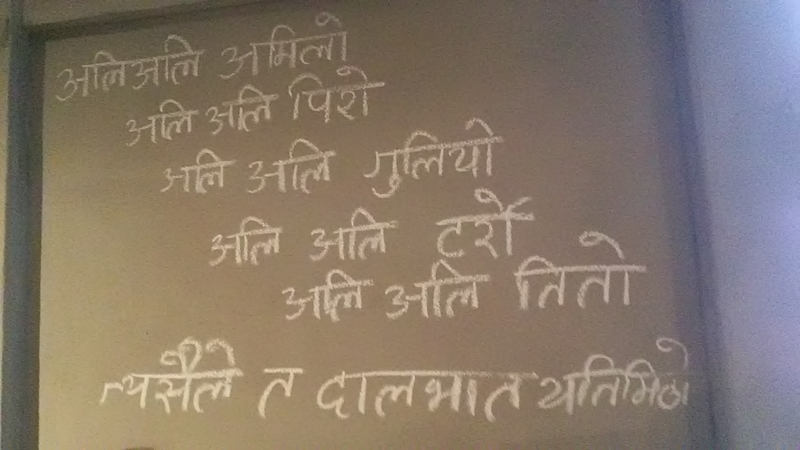 अलि अलि अमिलो
अलि अलि पिरो
अलि अलि गुलियो
अलि अलि टर्रो
अलि अलि तितो
त्यसैले त दालभात यति मिठो